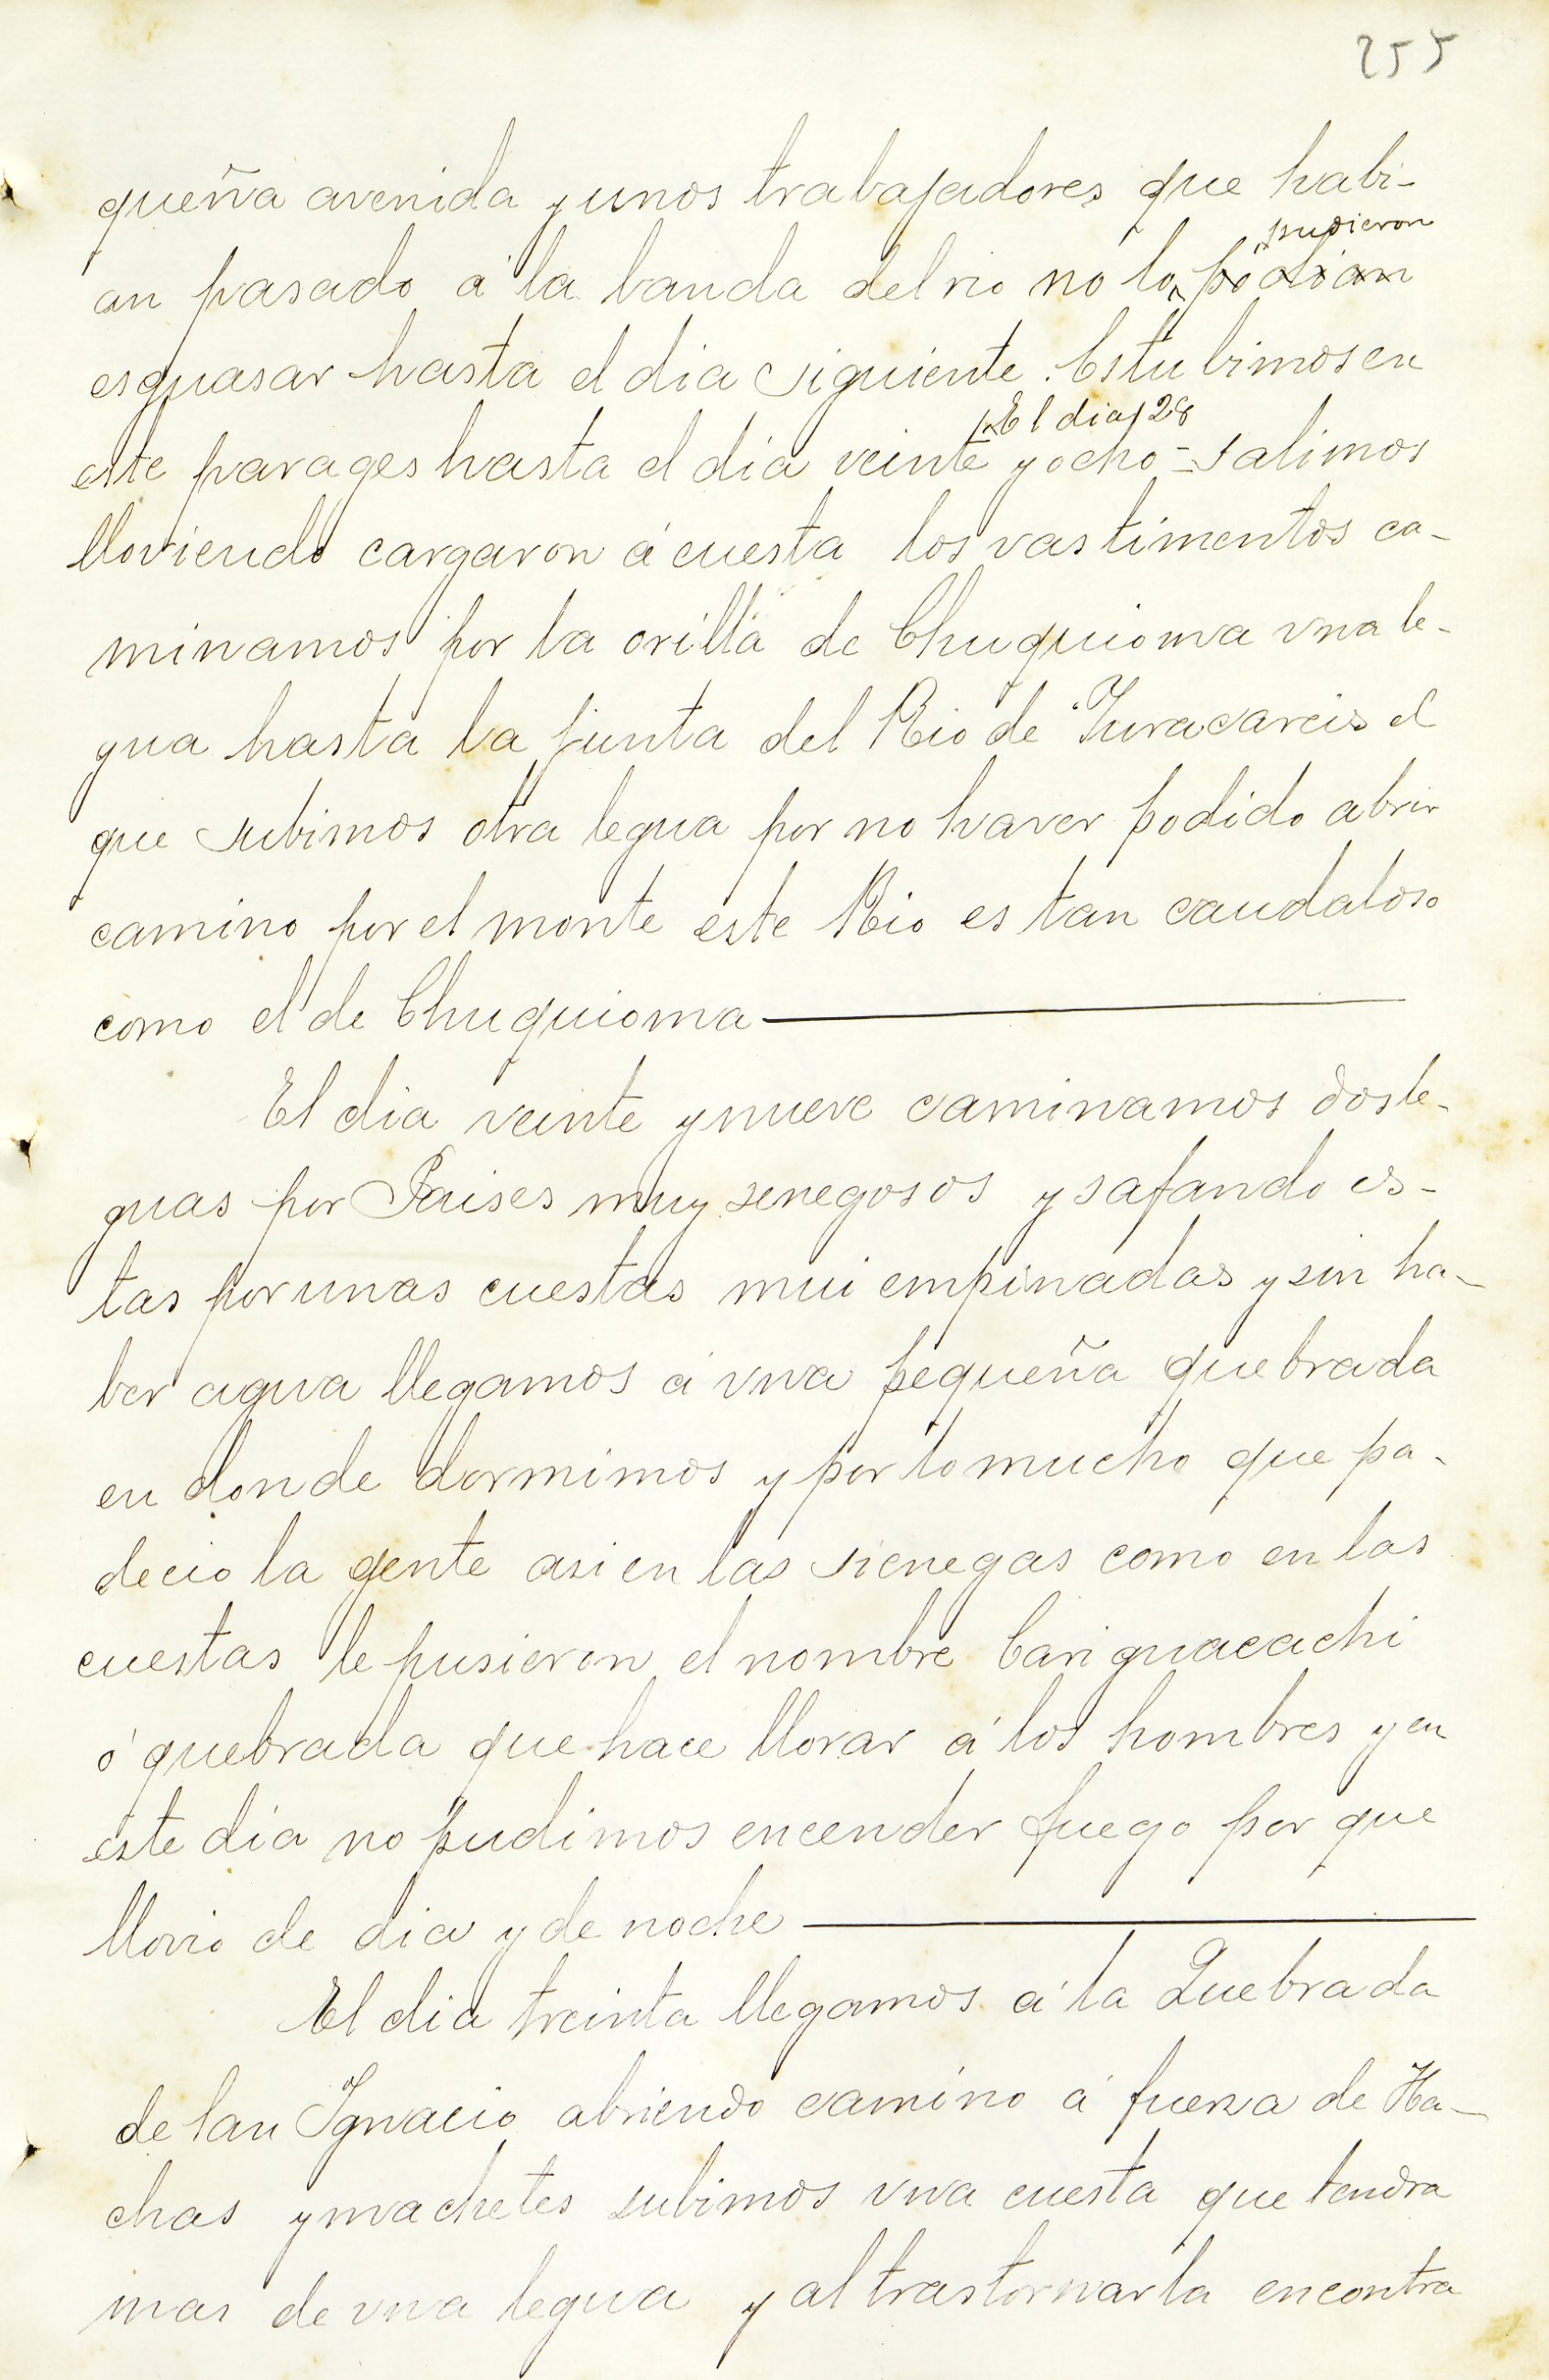 255
queña avenida y unos trabajadores que habi-
pudieron
an pasado á la banda del rio no lo podian
esguasar hasta el dia siguiente. Estubimos en
El dia 28
este parages hasta el dia veinte y ocho = salimos
lloviendo cargaron á cuesta los vastimentos ca-
minamos por la orilla de Chuquioma vna le-
gua hasta la junta del Rio de Yuracareis el
que subimos otra legua por no haver podido abrir
camino por el monte este Rio es tan caudaloso
como el de Chuquioma
El dia veinte y nueve caminamos dos le-
guas por Paises muy senegosos y safando es-
tas por unas cuestas mui empinadas y sin ha-
ber agua llegamos á vna pequeña quebrada
en donde dormimos y por lo mucho que pa-
decio la gente asi en las sienegas como en las
cuestas le pusieron el nombre Cariguacachi
ó quebrada que hace llorar á los hombres y en
este dia no pudimos encender fuego por que
llovio de dia y de noche
El dia treinta llegamos á la Quebrada
de San Ygnacio abriendo camino á fuerza de Ha-
chas y machetes subimos vna cuesta que tendra
mas de vna legua y al trastornarla encontra